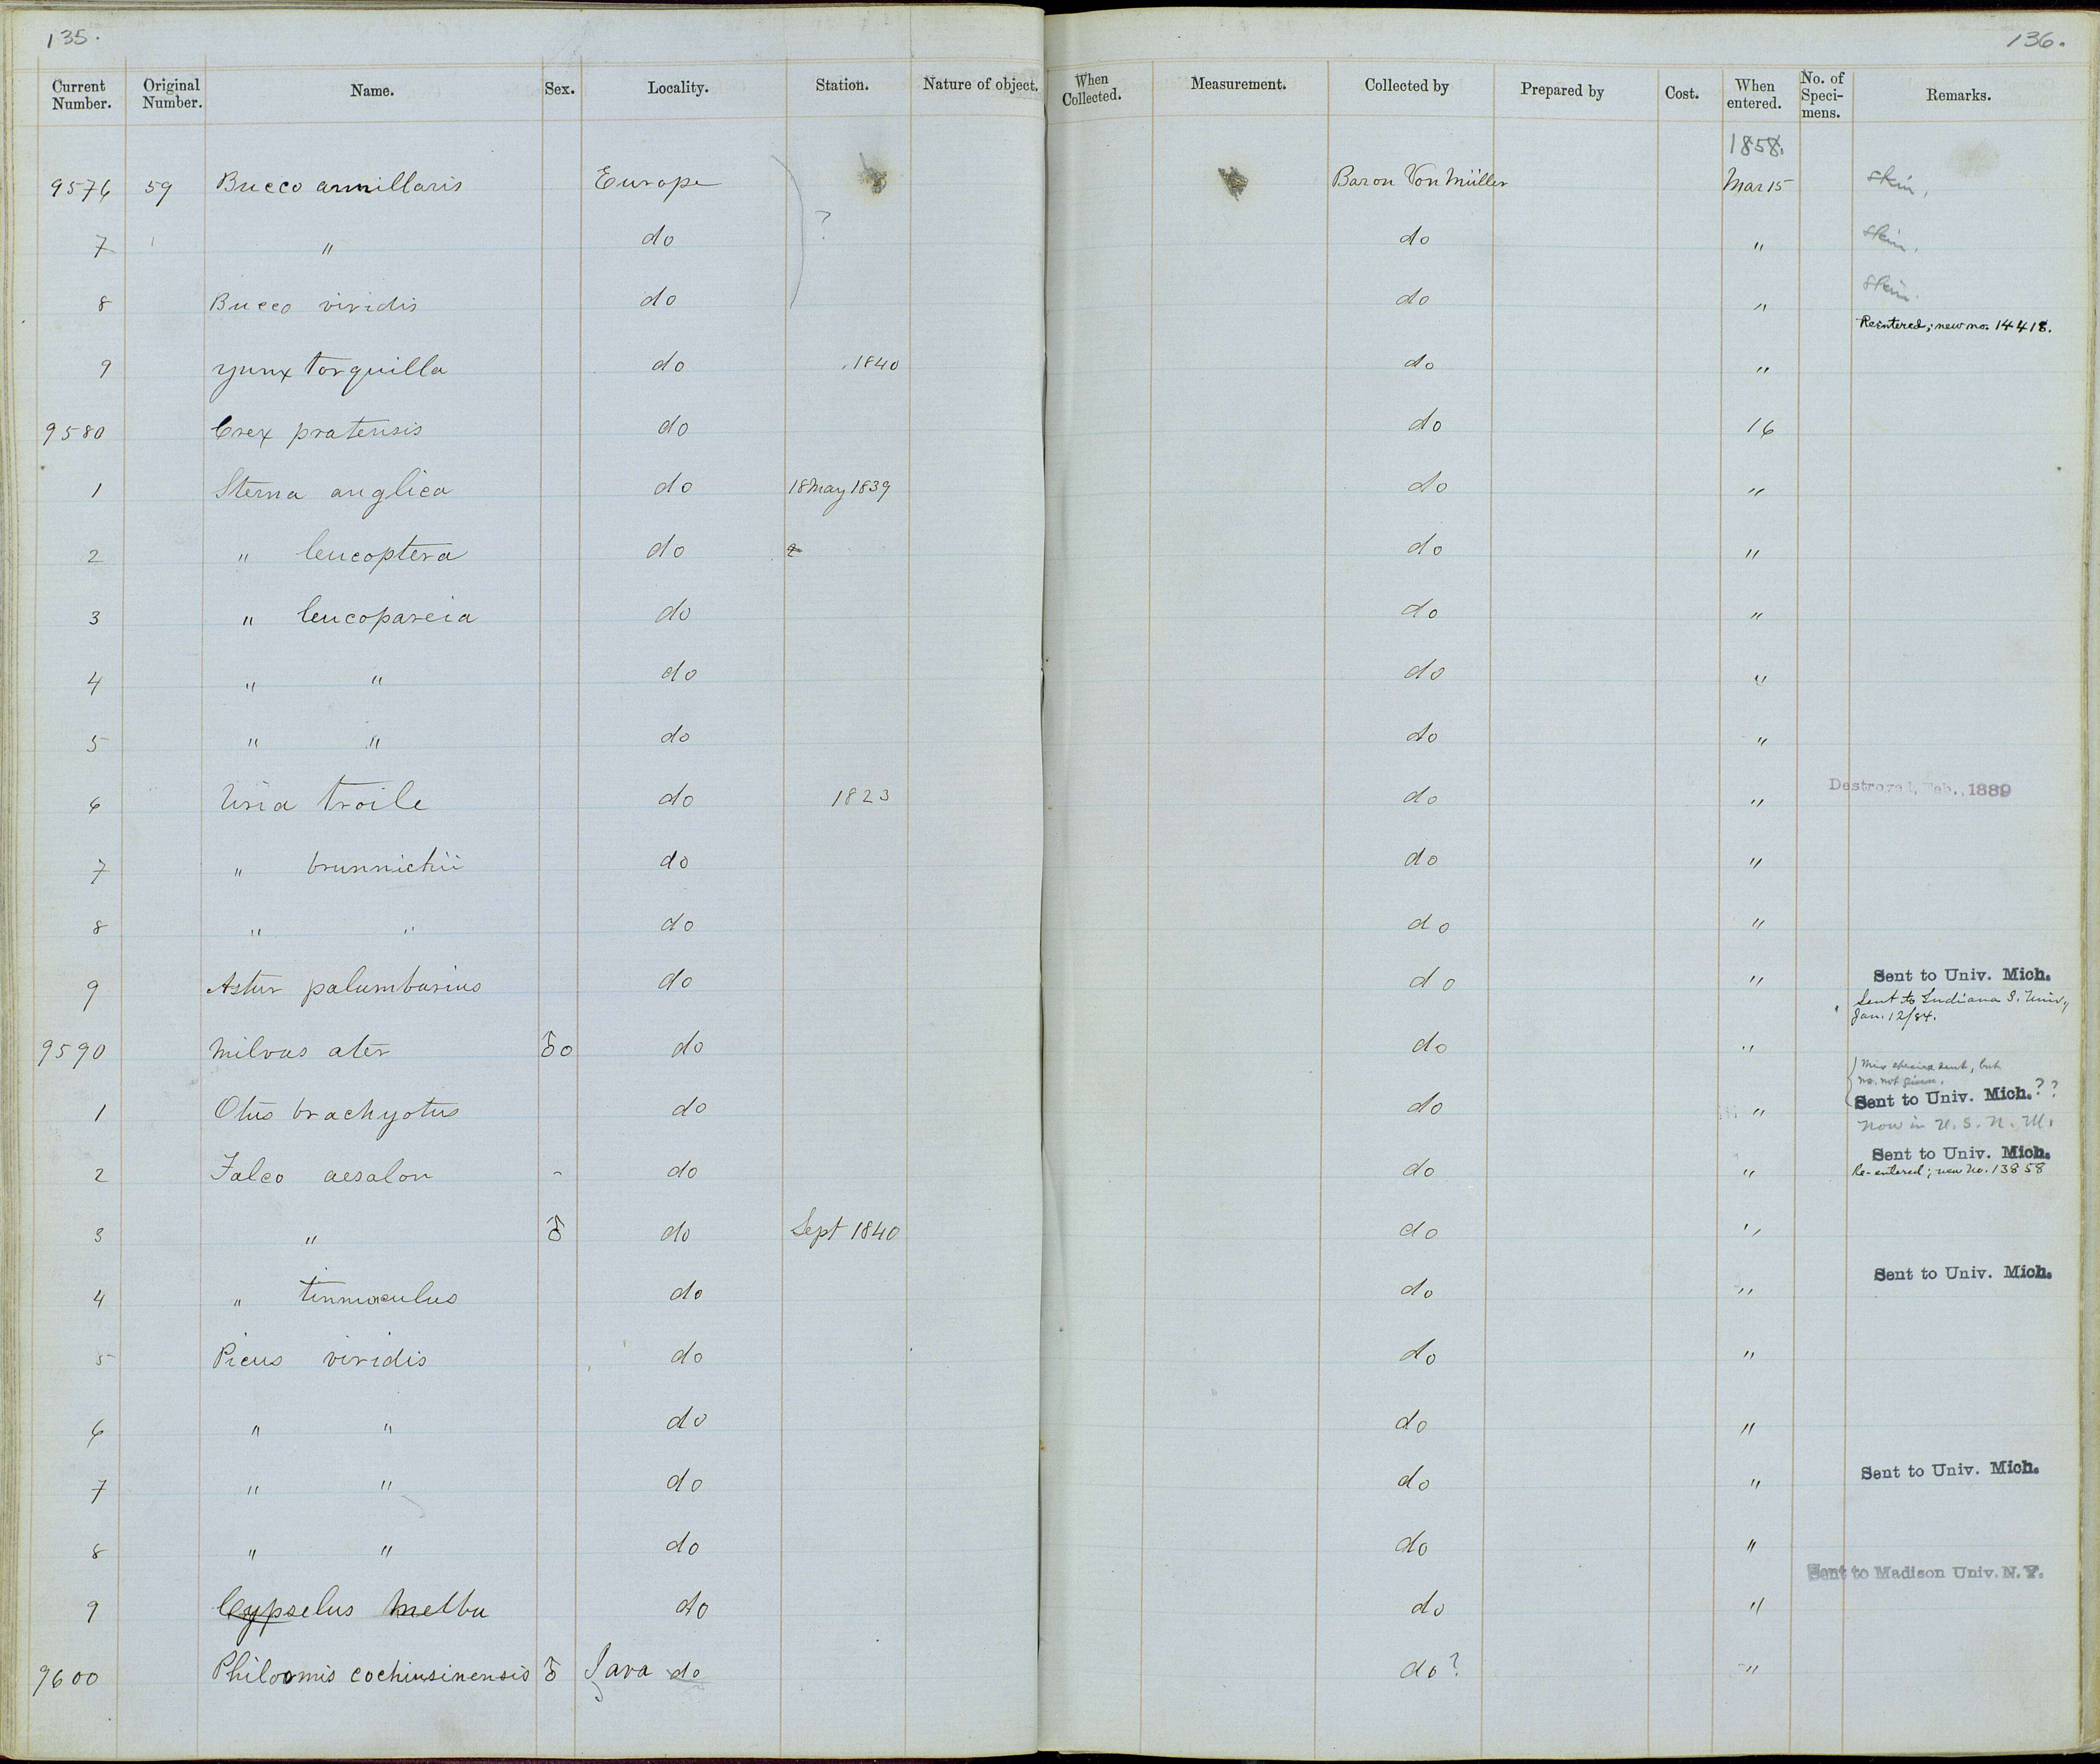 135.
136.
Current Number. Original Number. Name. Sex. Locality. Station. Nature of object. When Collected. Measurement. Collected by Prepared by Cost. When entered. No. of Speci-mens. Remarks.
1858.
9576 59 Bucco armillaris Europe Baron Von Müller Mar 15 Skin.
7 " do ? do " Skin.
8 Bucco viridis do do " Skin.
Reëntered; new no. 14418.
9 Yunx torquilla do 1840 do "
9580 Crex pratensis do do 16
1 Sterna anglica do 18 May 1839 do "
2 " leucoptera do do "
3 " leucopareia do do "
4 " " do do "
5 " " do do "
6 Uria troile do 1823 do " Destroyed, Feb., 1889
7 " brunnichii do do "
8 " " do do "
9 Astur palumbarius do do " Sent to Univ. Mich.
Sent to Indiana S. Univ., Jan. 12/84.
9590 Milvus ater ♂ o do do "
This species sent, but
no. not given.
1 Otus brachyotus do do " Sent to Univ. Mich. ??
Now in U.S.N.M.
2 Falco aesalon - do do " Sent to Univ. Mich.
Re-entered; new no. 13858
3 " ♂ do Sept 1840 do "
4 " tinnunculus do do " Sent to Univ. Mich.
5 Picus viridis do do "
6 " " do do "
7 " " do do " Sent to Univ. Mich.
8 " " do do "
Sent to Madison Univ. N.Y.
9 Cypselus melba do do "
9600 Philormis cochinsinensis ♂ Java do do ? "